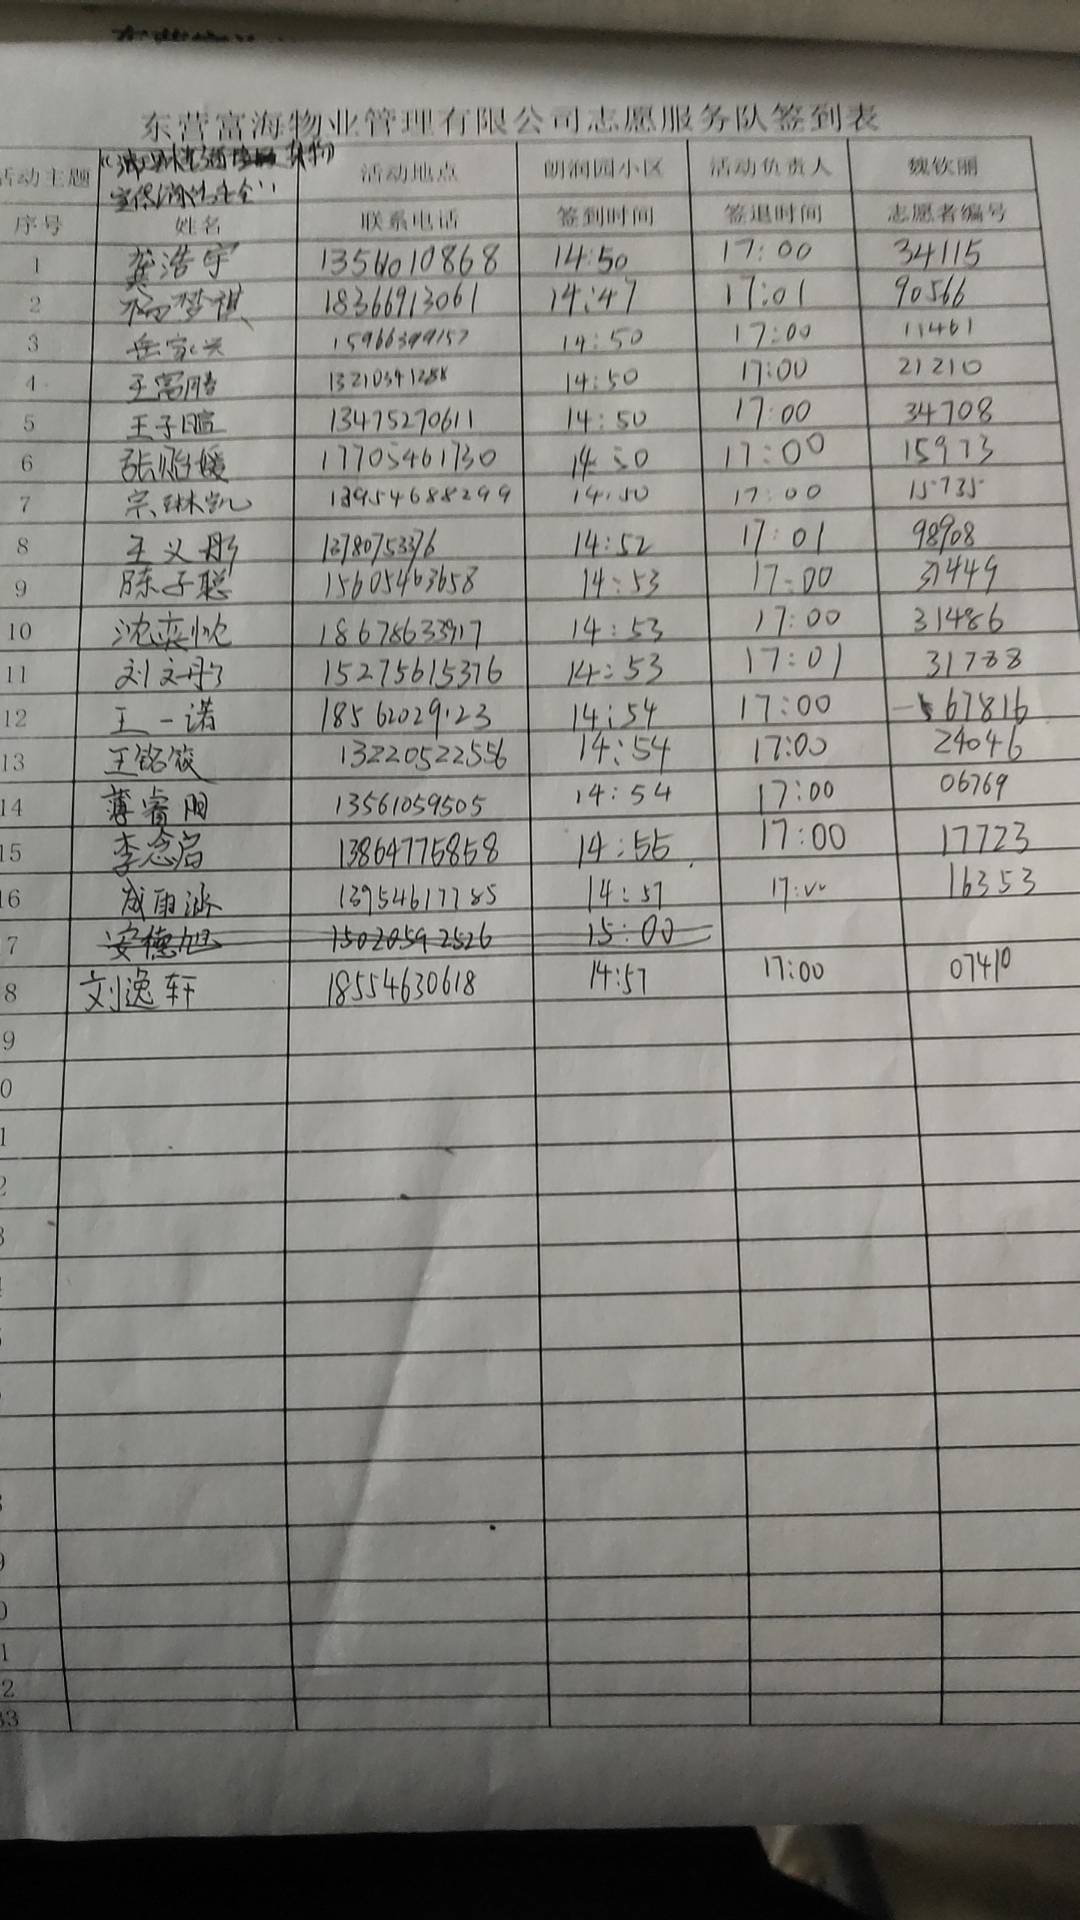 东营富海物业管理有限公司志愿服务队签到表
活动主题 活动地点 朗润园小区 活动负责人 魏钦丽
序号 姓名 联系电话 签到时间 签退时间 志愿者编号
1 龚浩宇 13561010868 14:50 17:00 34115
2 杨梦祺 18366913061 14:47 17:01 90566
3 岳家兴 14:50 17:00 11461
4 王富腾 14:50 17:00 21210
5 王子瑄 13475270611 14:50 17:00 34708
6 17705461730 14:50 17:00 15973
7 宗琳凯 13954688299 14:50 17:00 15735
8 王义彤 13780753376 14:52 17:01 98908
9 陈子聪 15605463658 14:53 17:00 31449
10 沈奕忱 18678633917 14:53 17:00 31486
11 刘文彤 15275615376 14:53 17:01 31788
12 王一诺 18562029123 14:54 17:00 67816
13 王铭筱 13220522556 14:54 17:00 24046
14 薄睿 13561059505 14:54 17:00 06769
15 李念启 13864775858 14:55 17:00 17723
16 成雨涵 13954617785 14:57 17:00 16353
7 安德旭 15020592526 15:00
8 刘逸轩 18554630618 14:57 17:00 07410
9
0
1
2
3
9
0
1
2
33